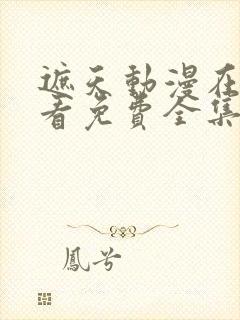 遮天動漫在
看免費全集
鳳兮